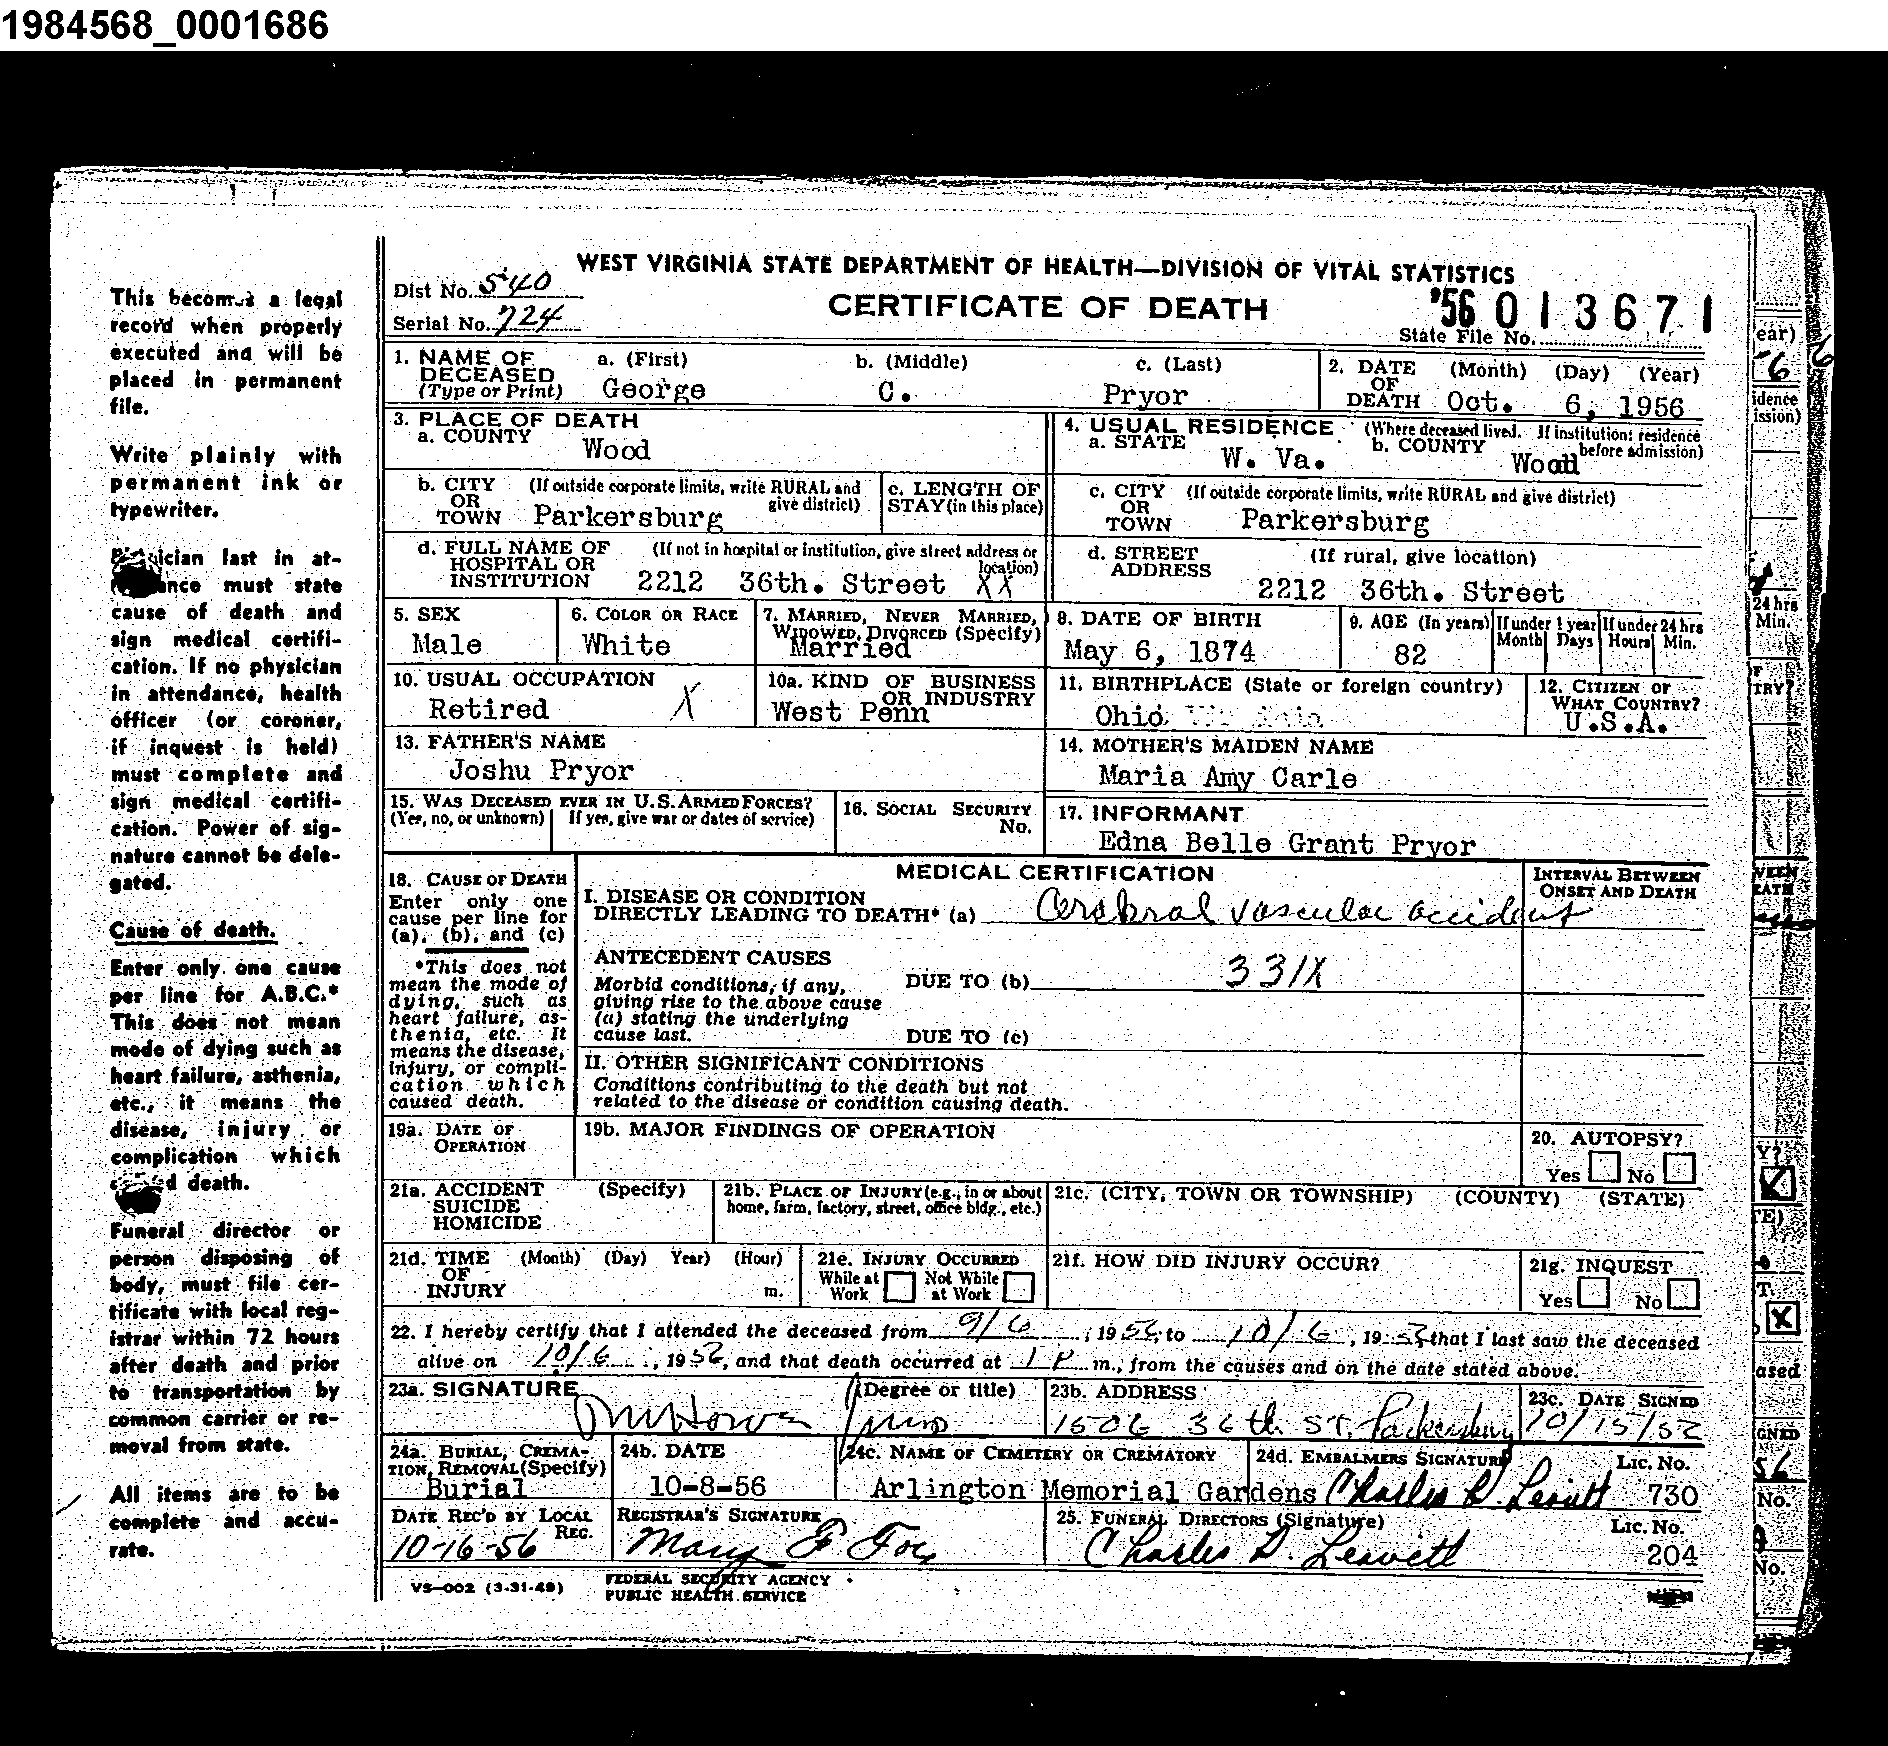 1984568_0001686
This becomes a legal
record when properly
executed and will be
placed in permanent
file.
Write plainly with
permanent ink or
typewriter.
ician last in at-
ance must state
cause of death and
sign medical certifi-
cation. If no physician
in attendance, health
officer (or coroner,
if inquest is held)
must complete and
sign medical certifi-
cation. Power of sig-
nature cannot be dele-
gated.
Cause of death.
Enter only one cause
per line for A.B.C.*
This does not mean
mode of dying such as
heart failure, asthenia,
etc., it means the
disease, injury or
complication which
d death.
Funeral director or
person disposing of
body, must file cer-
tificate with local reg-
istrar within 72 hours
after death and prior
to transportation by
common carrier or re-
moval from state.
All items are to be
complete and accu-
rate.
WEST VIRGINIA STATE DEPARTMENT OF HEALTH—DIVISION OF VITAL STATISTICS
Dist No. 540
CERTIFICATE OF DEATH
'56 013671
Serial No. 724
State File No.
1. NAME OF DECEASED (Type or Print)
a. (First) George
b. (Middle) C.
c. (Last) Pryor
2. DATE OF DEATH (Month) (Day) (Year) Oct. 6, 1956
3. PLACE OF DEATH
a. COUNTY Wood
4. USUAL RESIDENCE (Where deceased lived. If institution: residence before admission)
a. STATE W. Va.
b. COUNTY Wood
b. CITY OR TOWN (If outside corporate limits, write RURAL and give district) Parkersburg
c. LENGTH OF STAY (in this place)
c. CITY OR TOWN (If outside corporate limits, write RURAL and give district) Parkersburg
d. FULL NAME OF HOSPITAL OR INSTITUTION (If not in hospital or institution, give street address or location) 2212 36th. Street XX
d. STREET ADDRESS (If rural, give location) 2212 36th. Street
5. SEX Male
6. COLOR OR RACE White
7. MARRIED, NEVER MARRIED, WIDOWED, DIVORCED (Specify) Married
8. DATE OF BIRTH May 6, 1874
9. AGE (In years) 82
If under 1 year Month Days
If under 24 hrs Hours Min.
10. USUAL OCCUPATION Retired X
10a. KIND OF BUSINESS OR INDUSTRY West Penn
11. BIRTHPLACE (State or foreign country) Ohio
12. CITIZEN OF WHAT COUNTRY? U.S.A.
13. FATHER'S NAME Joshu Pryor
14. MOTHER'S MAIDEN NAME Maria Amy Carle
15. WAS DECEASED EVER IN U.S. ARMED FORCES?
(Yes, no, or unknown) If yes, give war or dates of service)
16. SOCIAL SECURITY No.
17. INFORMANT Edna Belle Grant Pryor
18. CAUSE OF DEATH
Enter only one
cause per line for
(a), (b), and (c)
*This does not
mean the mode of
dying, such as
heart failure, as-
thenia, etc. It
means the disease,
injury, or compli-
cation which
caused death.
MEDICAL CERTIFICATION
INTERVAL BETWEEN ONSET AND DEATH
I. DISEASE OR CONDITION
DIRECTLY LEADING TO DEATH* (a) Cerebral vascular accident
ANTECEDENT CAUSES
Morbid conditions, if any,
giving rise to the above cause
(a) stating the underlying
cause last.
DUE TO (b) 331X
DUE TO (c)
II. OTHER SIGNIFICANT CONDITIONS
Conditions contributing to the death but not
related to the disease or condition causing death.
19a. DATE OF OPERATION
19b. MAJOR FINDINGS OF OPERATION
20. AUTOPSY?
Yes No
21a. ACCIDENT SUICIDE HOMICIDE (Specify)
21b. PLACE OF INJURY (e.g., in or about home, farm, factory, street, office bldg., etc.)
21c. (CITY, TOWN OR TOWNSHIP) (COUNTY) (STATE)
21d. TIME OF INJURY (Month) (Day) Year) (Hour) m.
21e. INJURY OCCURRED
While at Work Not While at Work
21f. HOW DID INJURY OCCUR?
21g. INQUEST
Yes No
22. I hereby certify that I attended the deceased from 9/6, 1956, to 10/6, 1956, that I last saw the deceased
alive on 10/6, 1956, and that death occurred at 1 P m., from the causes and on the date stated above.
23a. SIGNATURE (Degree or title)
23b. ADDRESS 1506 36th ST. Parkersburg
23c. DATE SIGNED 10/15/56
24a. BURIAL, CREMATION, REMOVAL (Specify) Burial
24b. DATE 10-8-56
24c. NAME OF CEMETERY OR CREMATORY Arlington Memorial Gardens
24d. EMBALMERS SIGNATURE Charles D. Leavitt Lic. No. 730
DATE REC'D BY LOCAL REG. 10-16-56
REGISTRAR'S SIGNATURE Mary F Fox
25. FUNERAL DIRECTORS (Signature) Charles D. Leavitt Lic. No. 204
VS-002 (3-31-49)
FEDERAL SECURITY AGENCY
PUBLIC HEALTH SERVICE